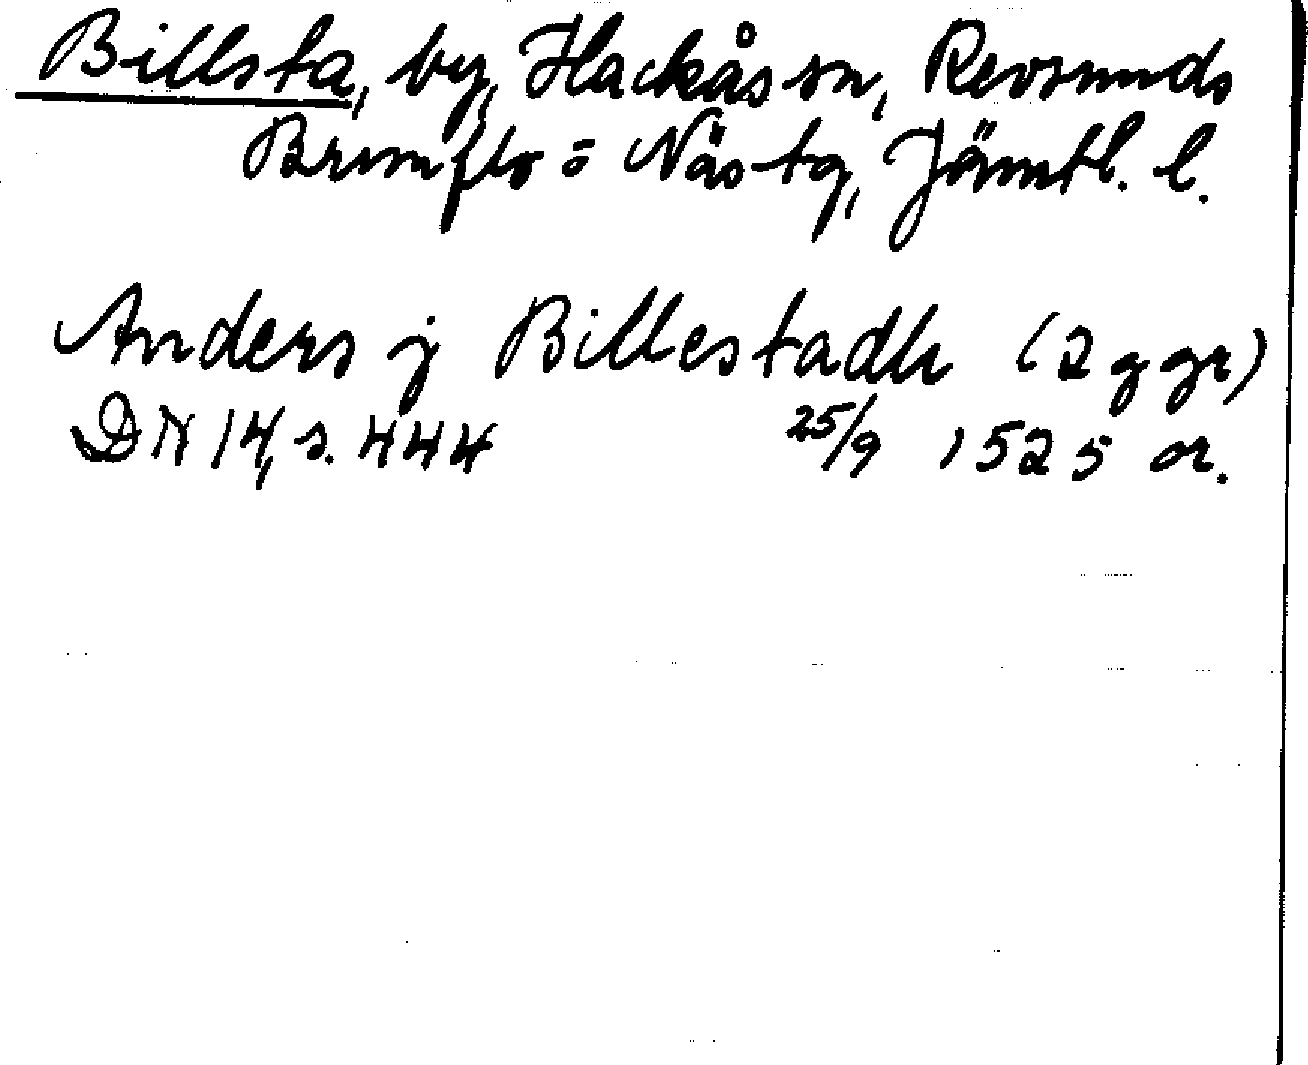 Billsta, by, Hackås sn, Revsunds
Brunflo o Näs tg, Jämtl. l.
Anders j Billestadh (2 ggr)
DN 14, s. 444 25/9 1525 or.